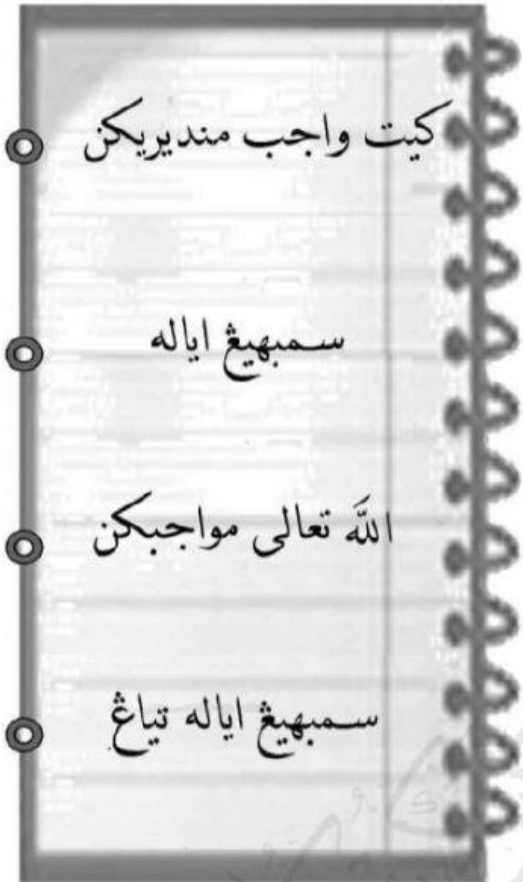 کيت واجب منديريکن
سمبهيڠ اياله
الله تعالى مواجبکن
سمبهيڠ اياله تياڠ